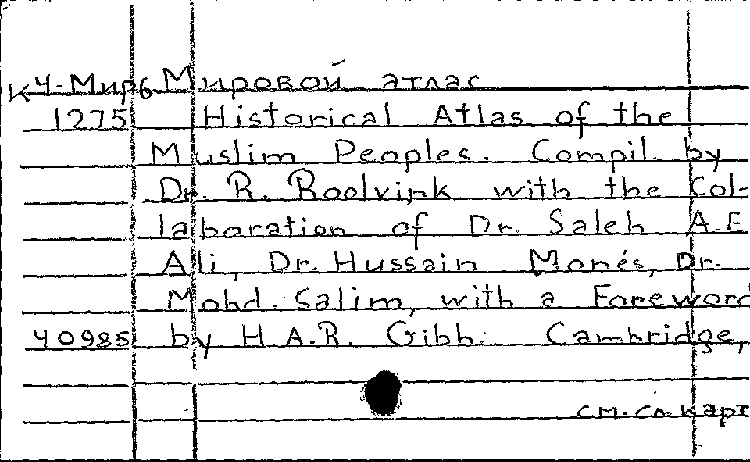 К4-Мир6 Мировой атлас
1275 Historical Atlas of the
Muslim Peoples. Compil by
Dr. R. Roolvink with the Col-
laboration of Dr. Saleh A.E
Ali, Dr. Hussain Monés, Dr.
Mohd. Salim, with a Foreword
40985 by H.A.R. Gibb. Cambridge,
см. сл. карт